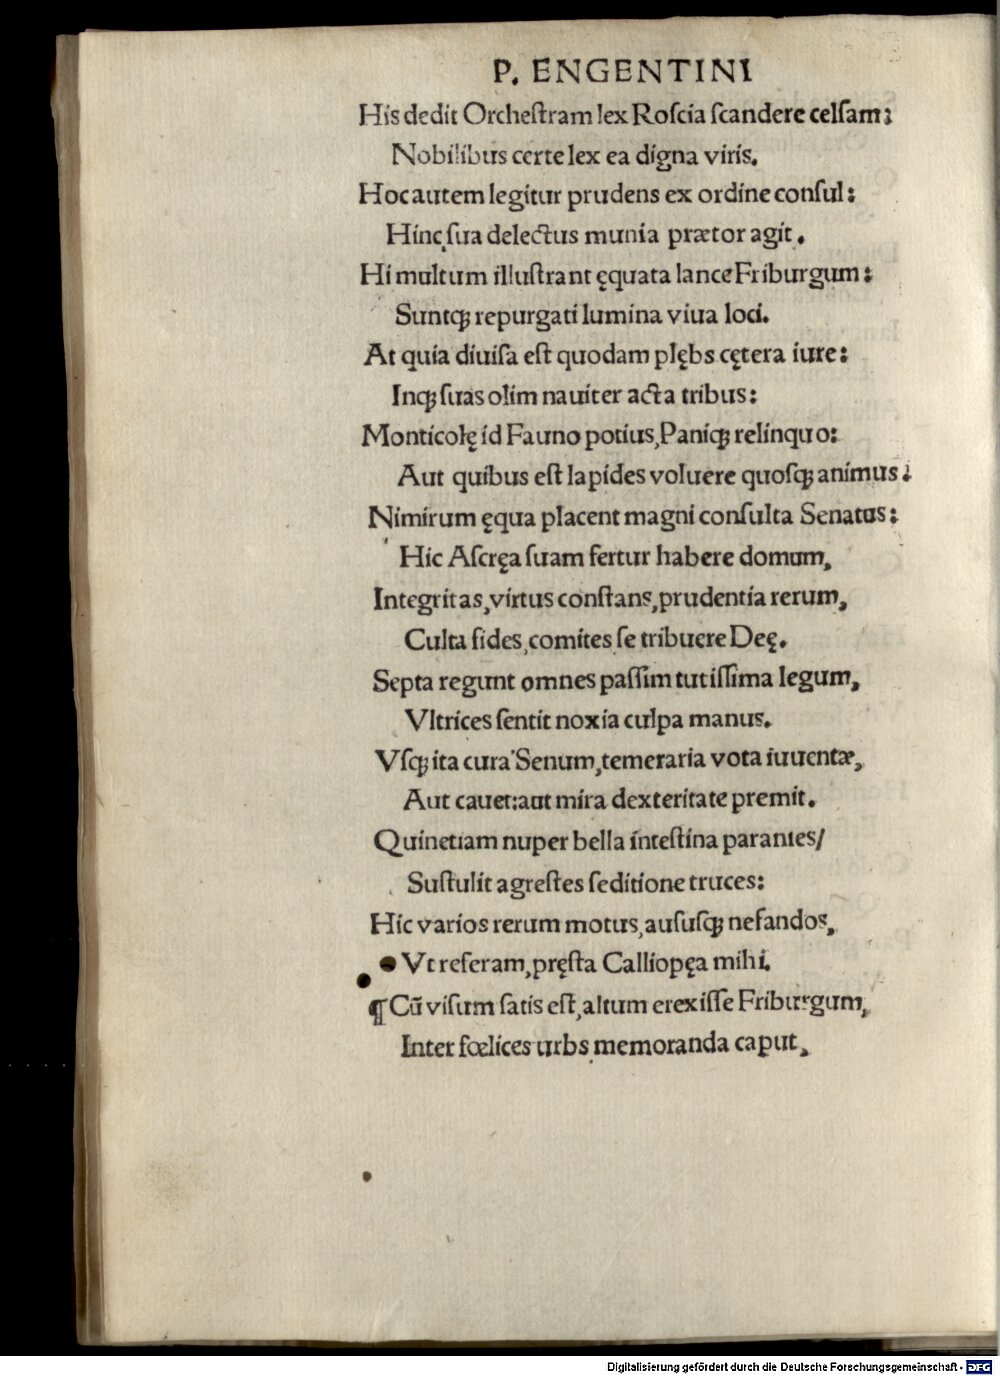 P. ENGENTINI
His dedit Orcheſtram lex Roſcia ſcandere celſam:
Nobilibus certe lex ea digna viris.
Hoc autem legitur prudens ex ordine conſul:
Hinc ſua delectus munia prætor agit.
Hi multum illuſtrant ęquata lance Friburgum:
Suntꝗ repurgati lumina viua loci.
At quia diuiſa eſt quodam plębs cętera iure:
Inꝗ ſuas olim nauiter acta tribus:
Monticolę id Fauno potius, Paniꝗ relinquo:
Aut quibus eſt lapides voluere quoſꝗ animus.
Nimirum ęqua placent magni conſulta Senatus:
Hic Aſcręa suam fertur habere domum,
Integritas, virtus conſtans, prudentia rerum,
Culta fides, comites ſe tribuere Deę.
Septa regunt omnes paſſim tutiſſima legum,
Vltrices ſentit noxia culpa manus.
Vſꝗ ita cura Senum, temeraria vota iuuentæ,
Aut cauet: aut mira dexteritate premit.
Quinetiam nuper bella inteſtina parantes/
Suſtulit agreſtes ſeditione truces:
Hic varios rerum motus, auſuſꝗ nefandos,
Vt referam, pręſta Calliopęa mihi.
¶ Cū viſum ſatis eſt, altum erexiſſe Friburgum,
Inter fœlices urbs memoranda caput,
Digitalisierung gefördert durch die Deutsche Forschungsgemeinschaft - DFG